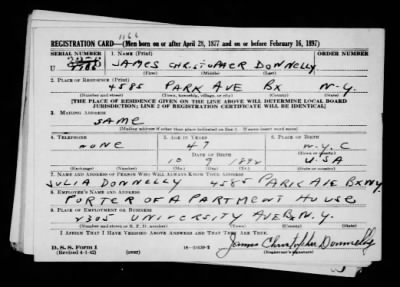 1166
REGISTRATION CARD—(Men born on or after April 28, 1877 and on or before February 16, 1897)
SERIAL NUMBER 1. NAME (Print) ORDER NUMBER
U JAMES CHRISTOPHER DONNELLY
(First) (Middle) (Last)
2. PLACE OF RESIDENCE (Print)
4585 PARK AVE BX N.Y.
(Number and street) (Town, township, village, or city) (County) (State)
[THE PLACE OF RESIDENCE GIVEN ON THE LINE ABOVE WILL DETERMINE LOCAL BOARD
JURISDICTION; LINE 2 OF REGISTRATION CERTIFICATE WILL BE IDENTICAL]
3. MAILING ADDRESS
SAME
[Mailing address if other than place indicated on line 2. If same insert word same]
4. TELEPHONE 5. AGE IN YEARS 6. PLACE OF BIRTH
NONE 47 N.Y.C
DATE OF BIRTH
10 9 USA
(Exchange) (Number) (Mo.) (Day) (Yr.) (State or country)
7. NAME AND ADDRESS OF PERSON WHO WILL ALWAYS KNOW YOUR ADDRESS
JULIA DONNELLY 4585 PARK AVE BX NY
8. EMPLOYER'S NAME AND ADDRESS
PORTER OF APARTMENT HOUSE
9. PLACE OF EMPLOYMENT OR BUSINESS
2305 UNIVERSITY AVE BX N.Y.
(Number and street or R. F. D. number) (Town) (County) (State)
I AFFIRM THAT I HAVE VERIFIED ABOVE ANSWERS AND THAT THEY ARE TRUE.
D. S. S. Form 1
(Revised 4-1-42) (over) James Christopher Donnelly
(Registrant's signature)